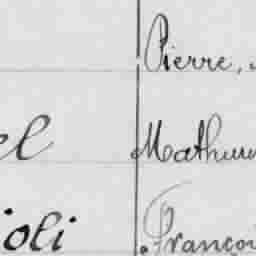 Pierre,
el Mathu
ioli Françoi